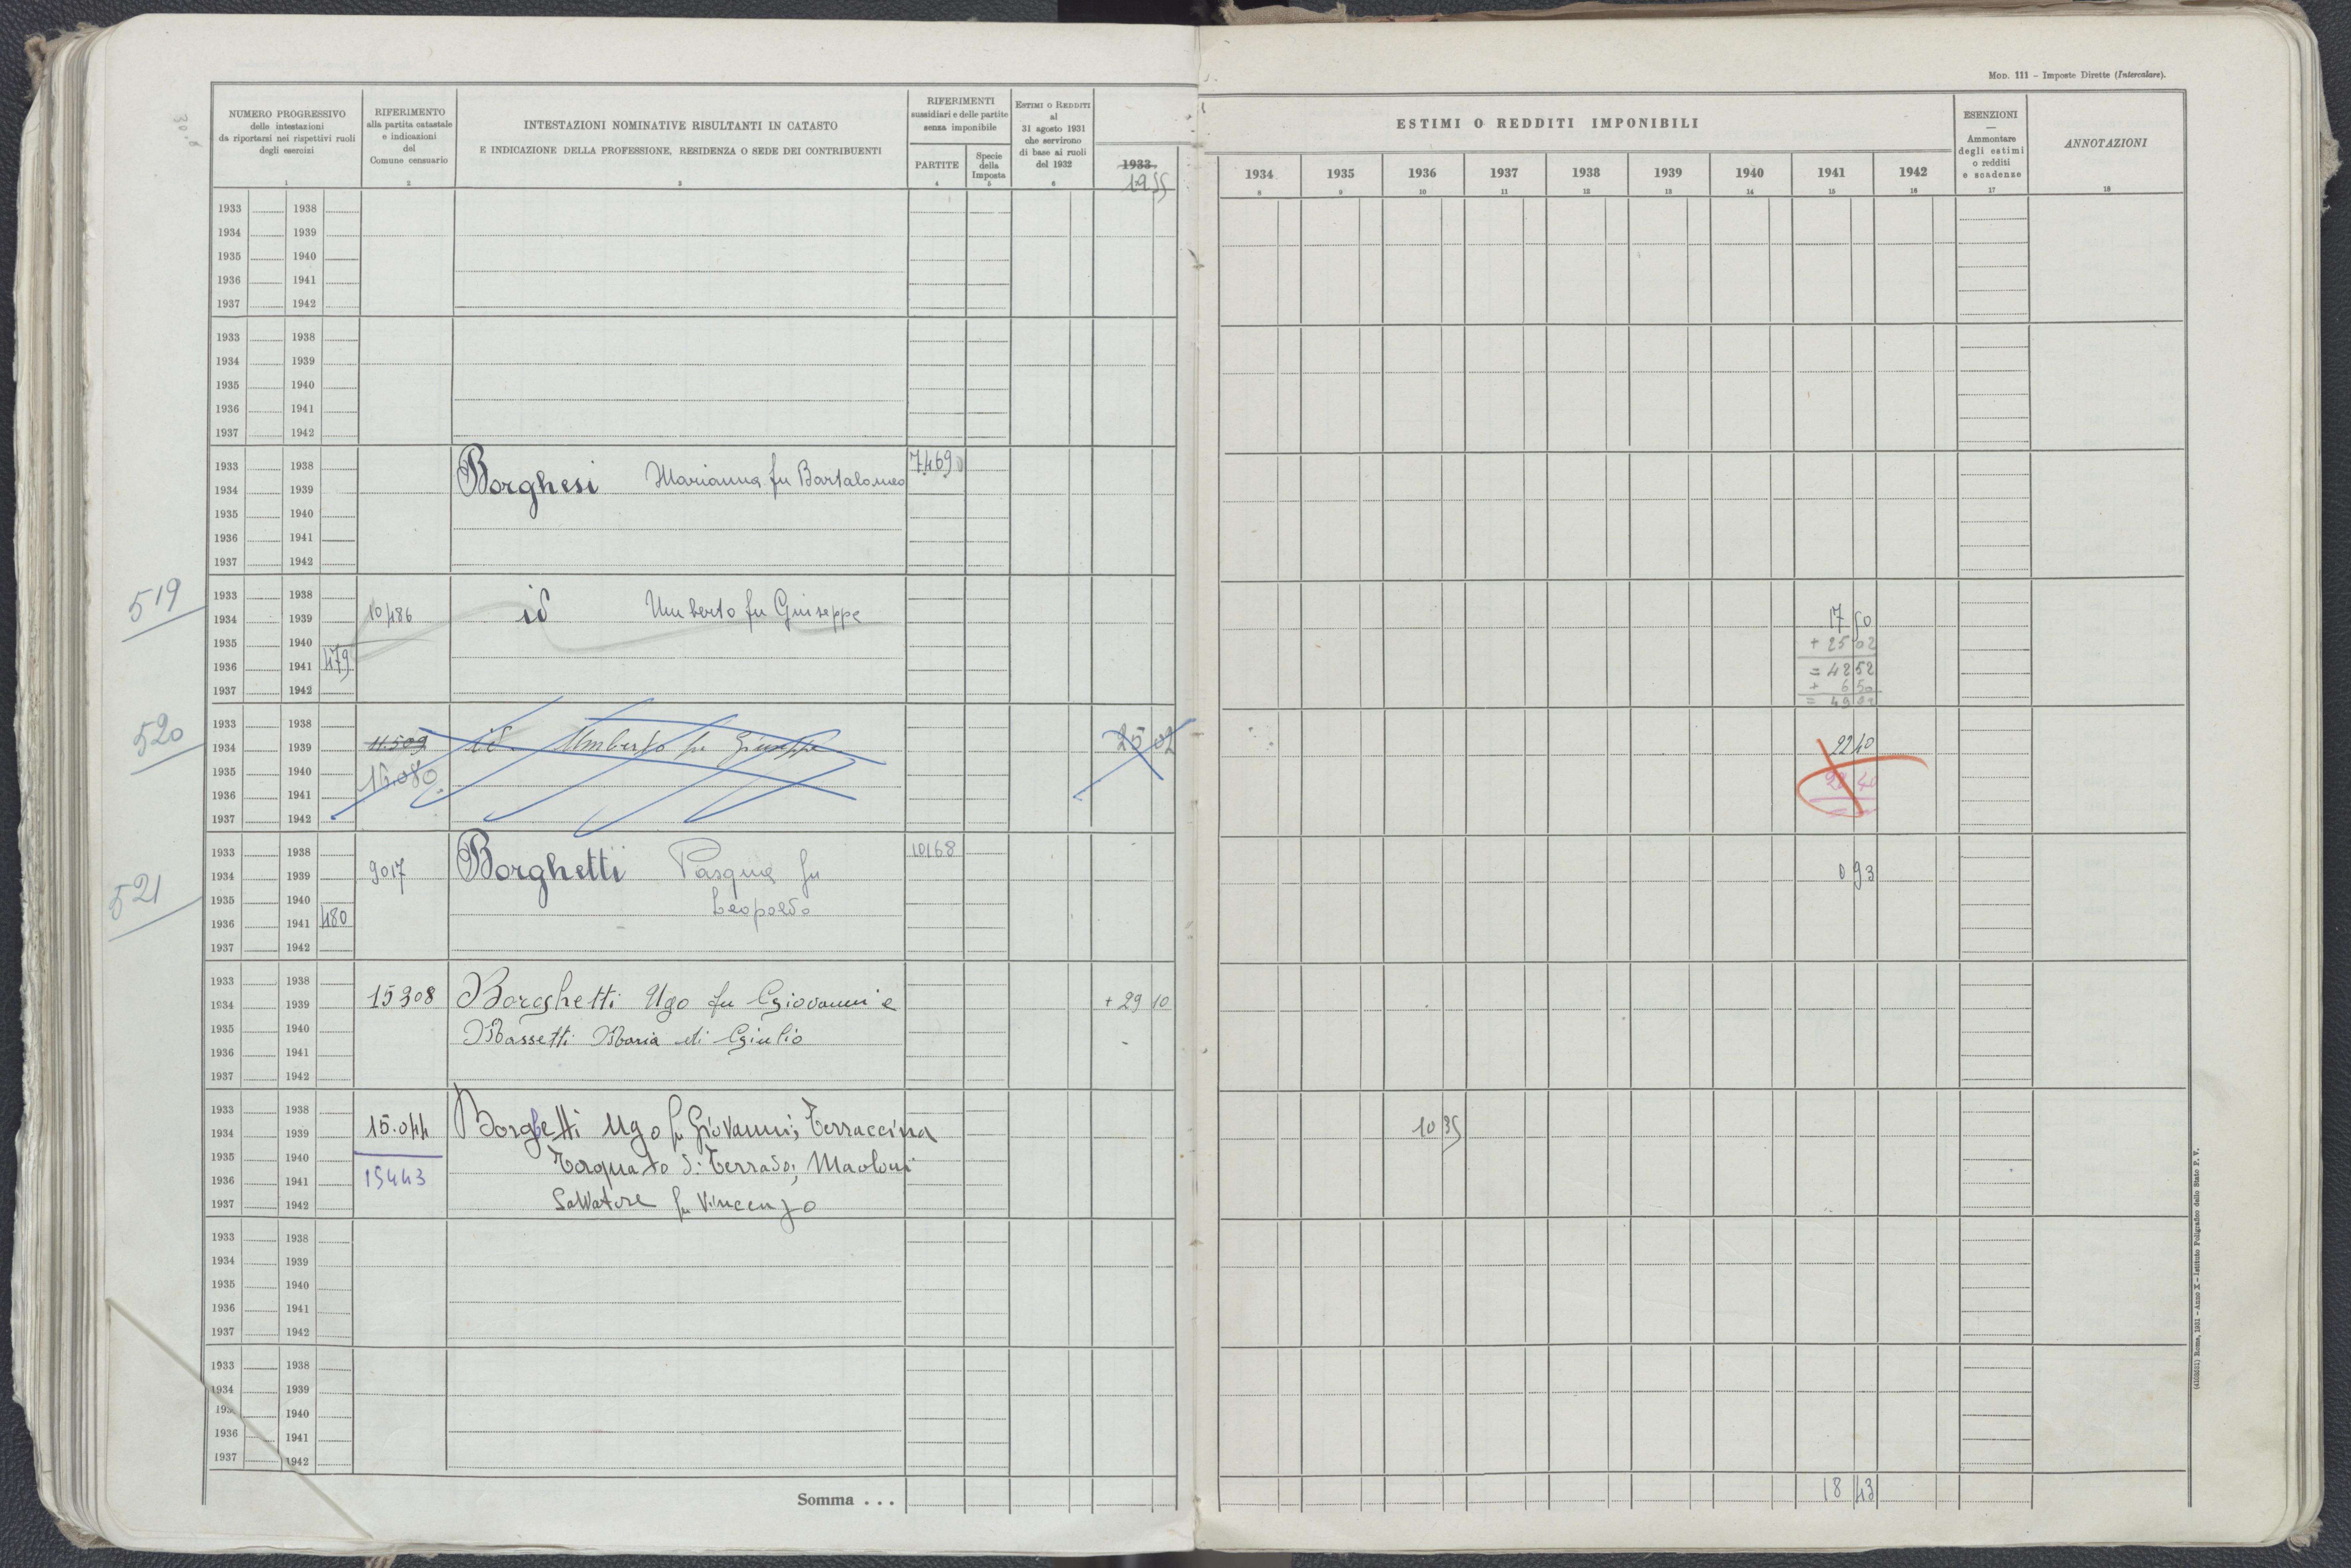 MOD. 111 – Imposte Dirette (Intercalare).
NUMERO PROGRESSIVO
delle intestazioni
da riportarsi nei rispettivi ruoli
degli esercizi
1
RIFERIMENTO
alla partita catastale
e indicazioni
del
Comune censuario
2
INTESTAZIONI NOMINATIVE RISULTANTI IN CATASTO
E INDICAZIONE DELLA PROFESSIONE, RESIDENZA O SEDE DEI CONTRIBUENTI
3
RIFERIMENTI
sussidiari e delle partite
senza imponibile
PARTITE
4
Specie
della
Imposta
5
ESTIMI O REDDITI
al
31 agosto 1931
che servirono
di base ai ruoli
del 1932
6
1933
1955
ESTIMI O REDDITI IMPONIBILI
1934 1935 1936 1937 1938 1939 1940 1941 1942
8 9 10 11 12 13 14 15 16
ESENZIONI
—
Ammontare
degli estimi
o redditi
e scadenze
17
ANNOTAZIONI
18
1933 1938
1934 1939
1935 1940
1936 1941
1937 1942
1933 1938
1934 1939
1935 1940
1936 1941
1937 1942
1933 1938 7469
1934 1939 Borghesi Marianna fu Bartolomeo
1935 1940
1936 1941
1937 1942
519
1933 1938
1934 1939 10486 id Umberto fu Giuseppe 17 50
1935 1940 + 25 02
1936 1941 479 = 42 52
+ 6 50
1937 1942 = 49 02
520
1933 1938
1934 1939 11.509 id. Umberto fu Giuseppe 25 02 22 40
1935 1940 16.080 22 40
1936 1941
1937 1942
521
1933 1938 10168
1934 1939 9017 Borghetti Pasqua fu 0 93
1935 1940 Leopoldo
1936 1941 480
1937 1942
1933 1938
1934 1939 15308 Borghetti Ugo fu Giovanni e + 29 10
1935 1940 Massetti Maria di Giulio
1936 1941
1937 1942
1933 1938
1934 1939 15.044 Borghetti Ugo fu Giovanni; Terraccina 10 35
1935 1940 Torquato di Terrado; Maoloni
1936 1941 15443
1937 1942 Salvatore fu Vincenzo
1933 1938
1934 1939
1935 1940
1936 1941
1937 1942
1933 1938
1934 1939
1940
1936 1941
1937 1942
Somma . . . 18 43
(4103831) Roma, 1931 – Anno X – Istituto Poligrafico dello Stato P. V.